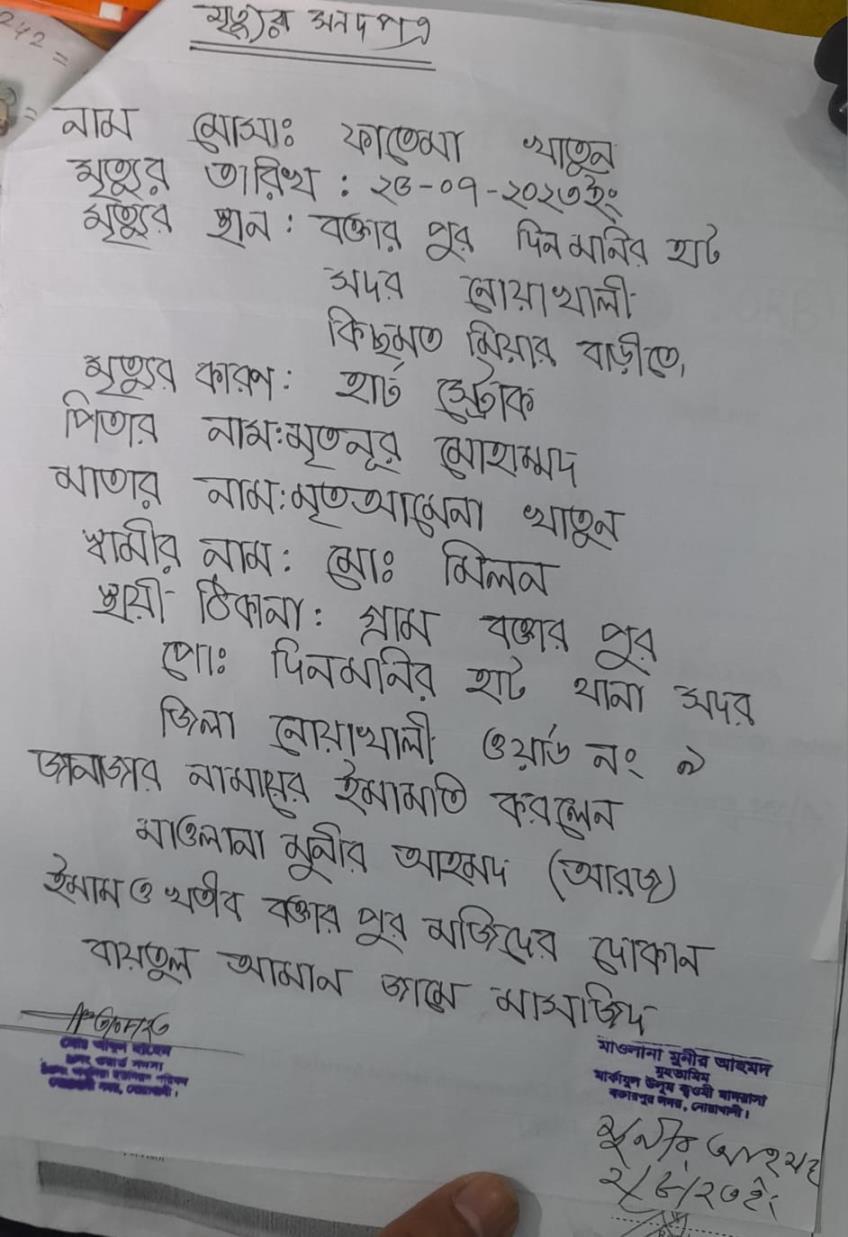 ২৪২ =
মৃত্যুর সনদপত্র
নাম মোসাঃ ফাতেমা খাতুন
মৃত্যুর তারিখ : ২৩-০৭-২০২৩ইং
মৃত্যুর স্থান : বক্তার পুর দিনমনির হাট
সদর নোয়াখালী
কিছমত মিয়ার বাড়ীতে,
মৃত্যুর কারণ : হার্ট স্ট্রোক
পিতার নাম:মৃতনূর মোহাম্মদ
মাতার নাম:মৃতআমেনা খাতুন
স্বামীর নাম: মোঃ মিলন
স্থায়ী ঠিকানা : গ্রাম বক্তার পুর
পোঃ দিনমনির হাট থানা সদর
জিলা নোয়াখালী ওয়ার্ড নং ৯
জানাজার নামাযের ইমামতি করলেন
মাওলানা মুনীর আহমদ (আরজু)
ইমাম ও খতীব বক্তার পুর মজিদের দোকান
বায়তুল আমান জামে মাসজিদ
মাওলানা মুনীর আহমদ
মুহতামিম
মার্কাযুল উলূম ক্বওমী মাদরাসা
বক্তারপুর সদর, নোয়াখালী।
মুনীর আহমদ